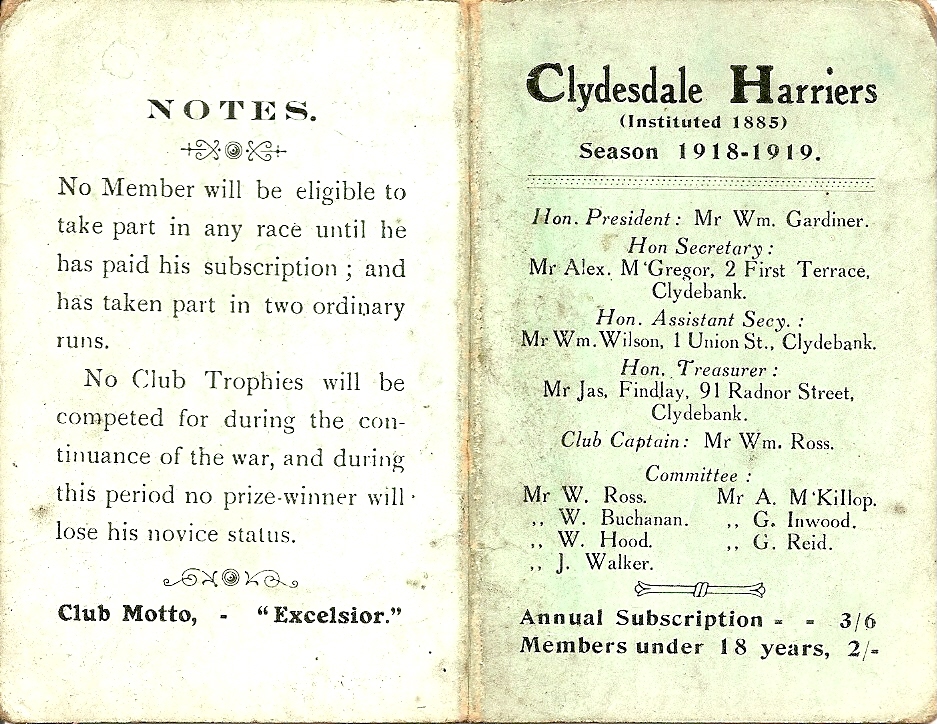 NOTES.
No Member will be eligible to
take part in any race until he
has paid his subscription ; and
has taken part in two ordinary
runs.
No Club Trophies will be
competed for during the con-
tinuance of the war, and during
this period no prize-winner will
lose his novice status.
Club Motto, - "Excelsior."
Clydesdale Harriers
(Instituted 1885)
Season 1918-1919.
Hon. President: Mr Wm. Gardiner.
Hon Secretary :
Mr Alex. M'Gregor, 2 First Terrace,
Clydebank.
Hon. Assistant Secy. :
Mr Wm. Wilson, 1 Union St., Clydebank.
Hon. Treasurer :
Mr Jas, Findlay, 91 Radnor Street,
Clydebank.
Club Captain: Mr Wm. Ross.
Committee :
Mr W. Ross. Mr A. M'Killop.
,, W. Buchanan. ,, G. Inwood.
,, W. Hood. ,, G. Reid.
,, J. Walker.
Annual Subscription - - 3/6
Members under 18 years, 2/-